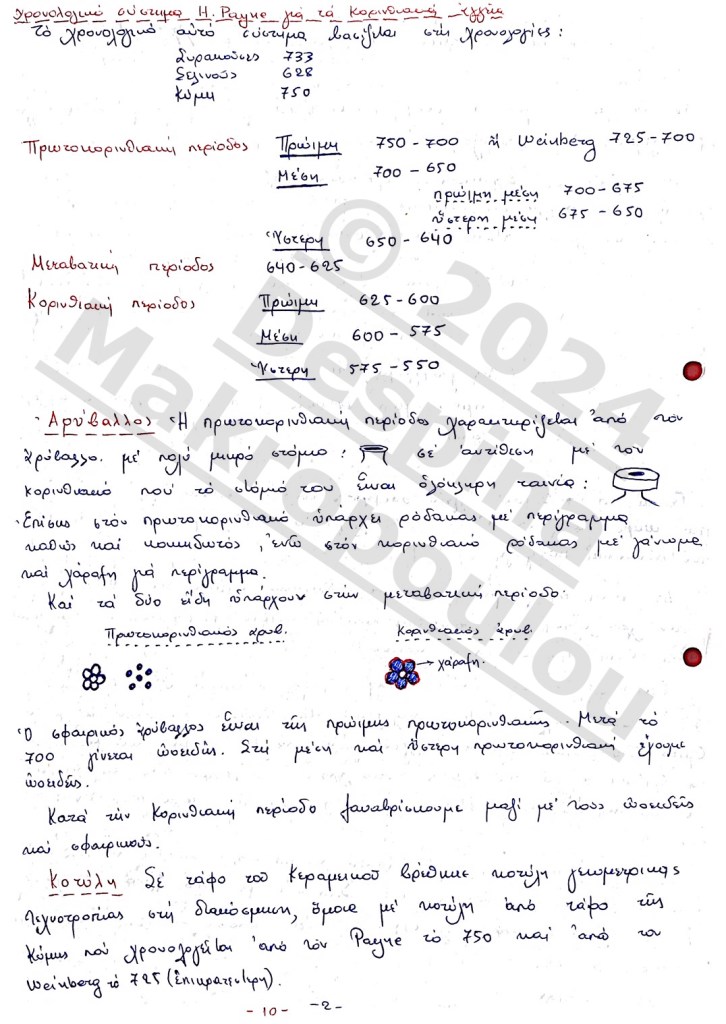 Χρονολογικό σύστημα H. Payne γιά τά Κορινθιακά ἀγγεῖα
Τό χρονολογικό αὐτό σύστημα βασίζεται στή χρονολογίες:
Συρακούσες 733
Σελινοῦς 628
Κύμη 750
Πρωτοκορινθιακή περίοδος Πρώιμη 750-700 ἤ Weinberg 725-700
Μέση 700-650
πρώιμη μέση 700-675
ὕστερη μέση 675-650
Ὕστερη 650-640
Μεταβατική περίοδος 640-625
Κορινθιακή περίοδος Πρώιμη 625-600
Μέση 600-575
Ὕστερη 575-550
Ἀρύβαλλος Ἡ πρωτοκορινθιακή περίοδος χαρακτηρίζεται ἀπό τόν
ἀρύβαλλο μέ πολύ μικρό στόμιο: σέ ἀντίθεση μέ τον
κορινθιακό πού τό στόμιό του εἶναι ὁλόκληρη ταινία:
Ἐπίσης στόν πρωτοκορινθιακό ὑπάρχει ρόδακας μέ περίγραμμα
καθώς καί κουκιδωτός, ἐνῶ στόν κορινθιακό ρόδακας μέ γάνωμα
καί χάραξη γιά περίγραμμα.
Καί τά δύο εἴδη ὑπάρχουν στήν μεταβατική περίοδο.
Πρωτοκορινθιακός ἀρυβ. Κορινθιακός ἀρυβ.
χάραξη.
Ὁ σφαιρικός ἀρύβαλλος εἶναι τῆς πρώιμης πρωτοκορινθιακῆς. Μετά τό
700 γίνεται ὠοειδής. Στή μέση καί ὕστερη πρωτοκορινθιακή ἔχουμε
ὠοειδεῖς.
Κατά τήν Κορινθιακή περίοδο ξαναβρίσκουμε μαζί μέ τους ὠοειδεῖς
καί σφαιρικούς.
Κοτύλη Σέ τάφο τοῦ Κεραμεικοῦ βρέθηκε κοτύλη γεωμετρικῆς
τεχνοτροπίας στή διακόσμηση, ὅμοια μέ κοτύλη ἀπό τάφο τῆς
Κύμης πού χρονολογεῖται ἀπό τόν Payne τό 750 καί ἀπό τον
Weinberg τό 725 (ἐπικρατέστερη).
-10- -2-
© 2024
Despina
Makropoulou